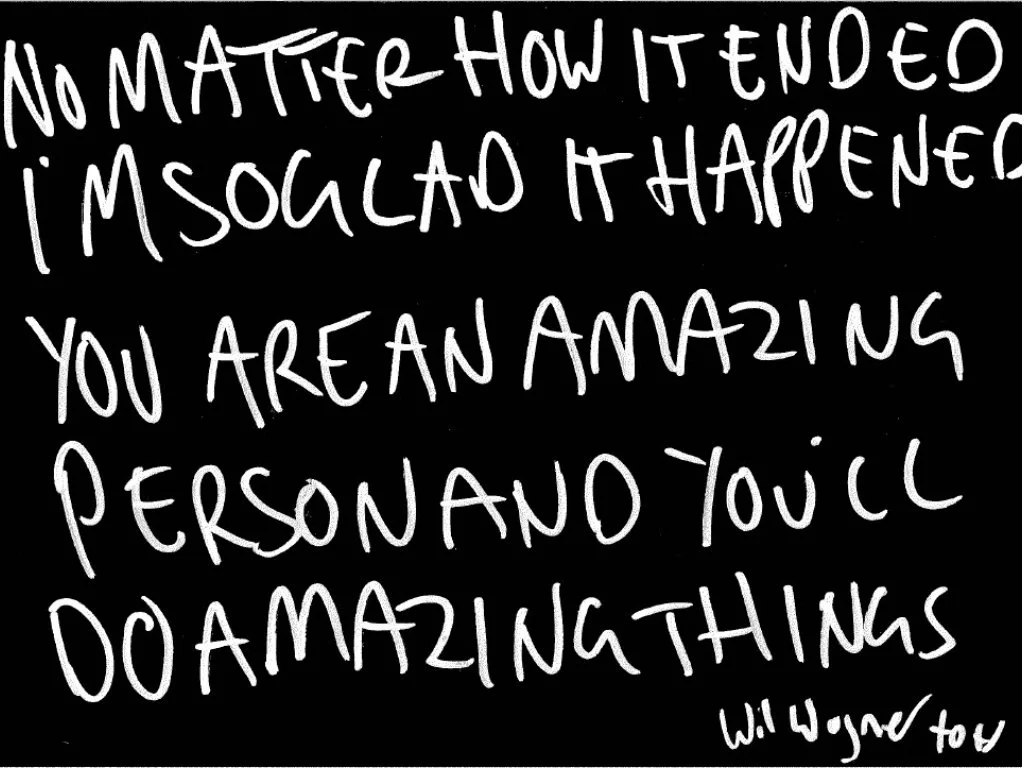 NO MATTER HOW IT ENDED
I'M SO GLAD IT HAPPENED
YOU ARE AN AMAZING
PERSON AND YOU'LL
DO AMAZING THINGS
Wil Wagner